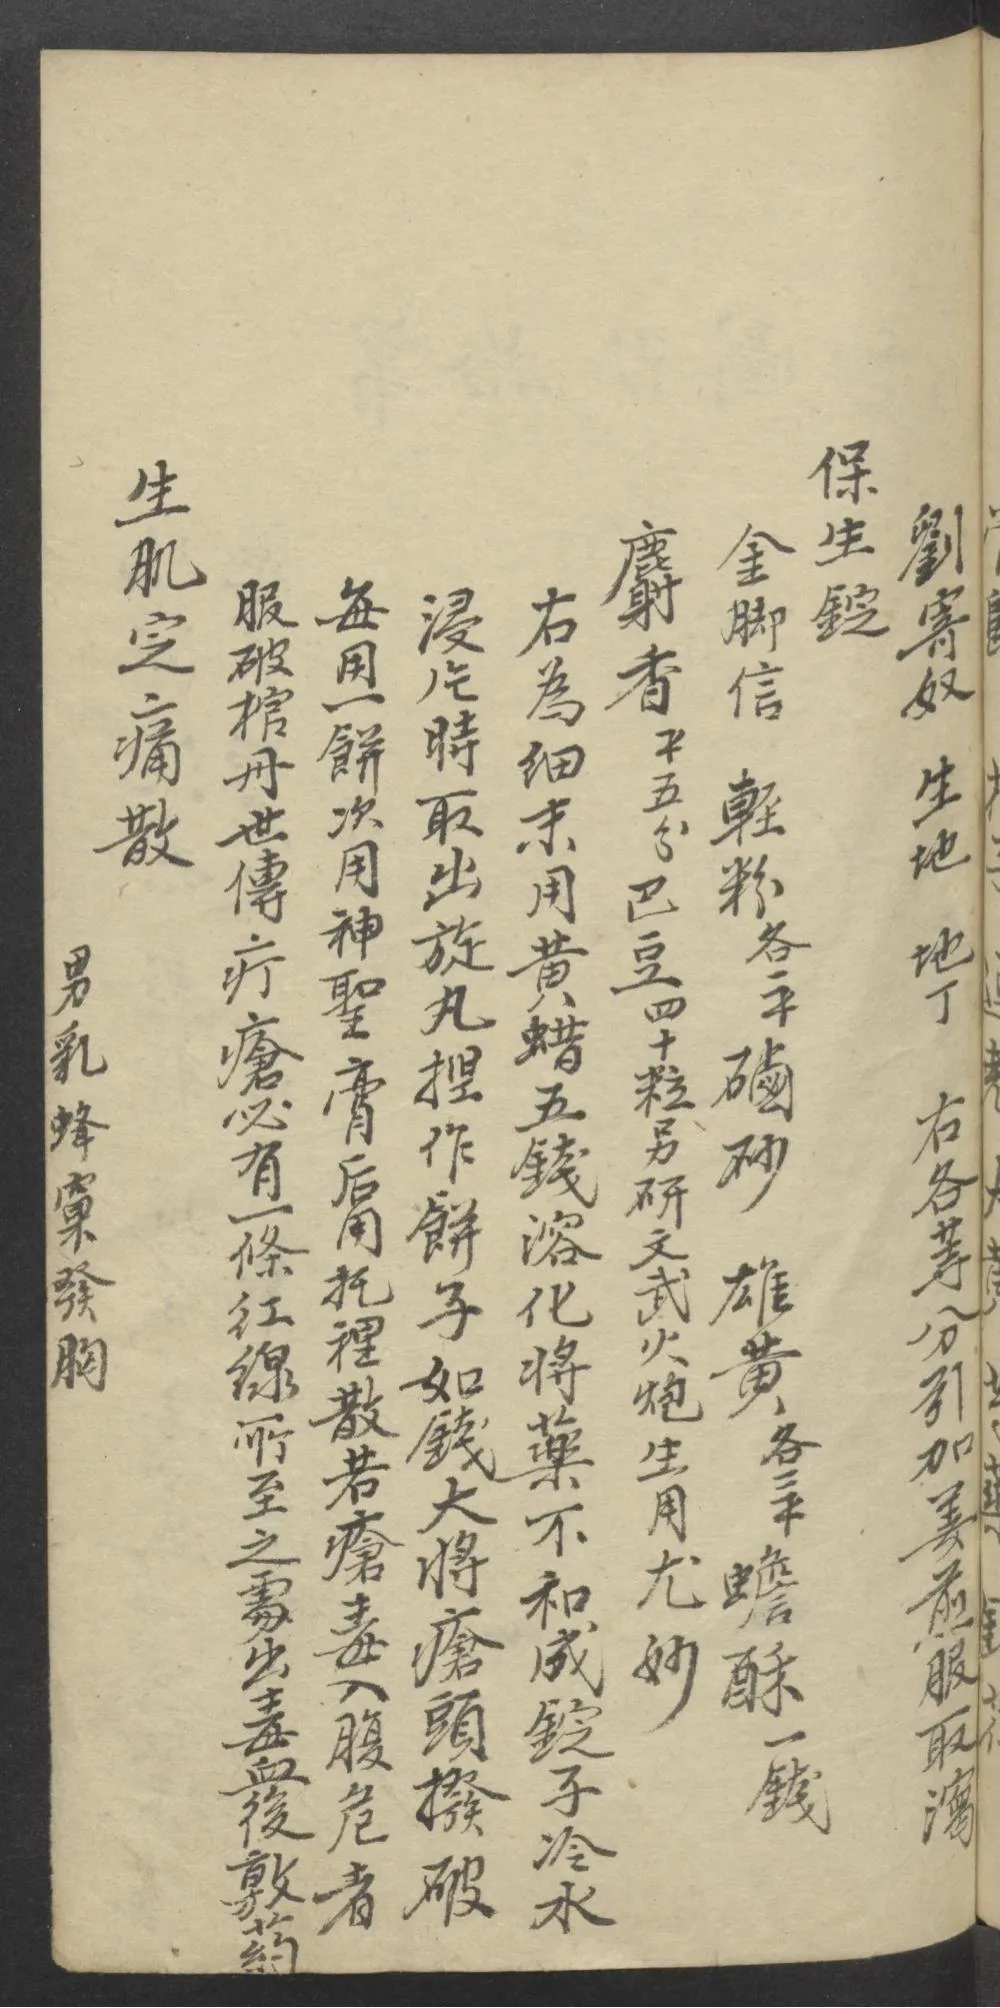 劉寄奴 生地 地丁 右各等分引加姜煎服取瀉
保生錠
金脚信 輕粉各二錢 硇砂 雄黄各三錢 蟾酥一錢
麝香錢五分 巴豆四十粒另研文武火炮生用尤妙
右為細末用黄蜡五錢溶化将藥不和成錠子冷水
浸片時取出旋丸揑作餅子如錢大将瘡頭撥破
每用一餅次用神聖膏后用托裡散若瘡毒入腹危者
服破棺丹世傳疔瘡必有一條紅線所至之處出毒血後敷葯
生肌定痛散
男乳蜂窠發胸